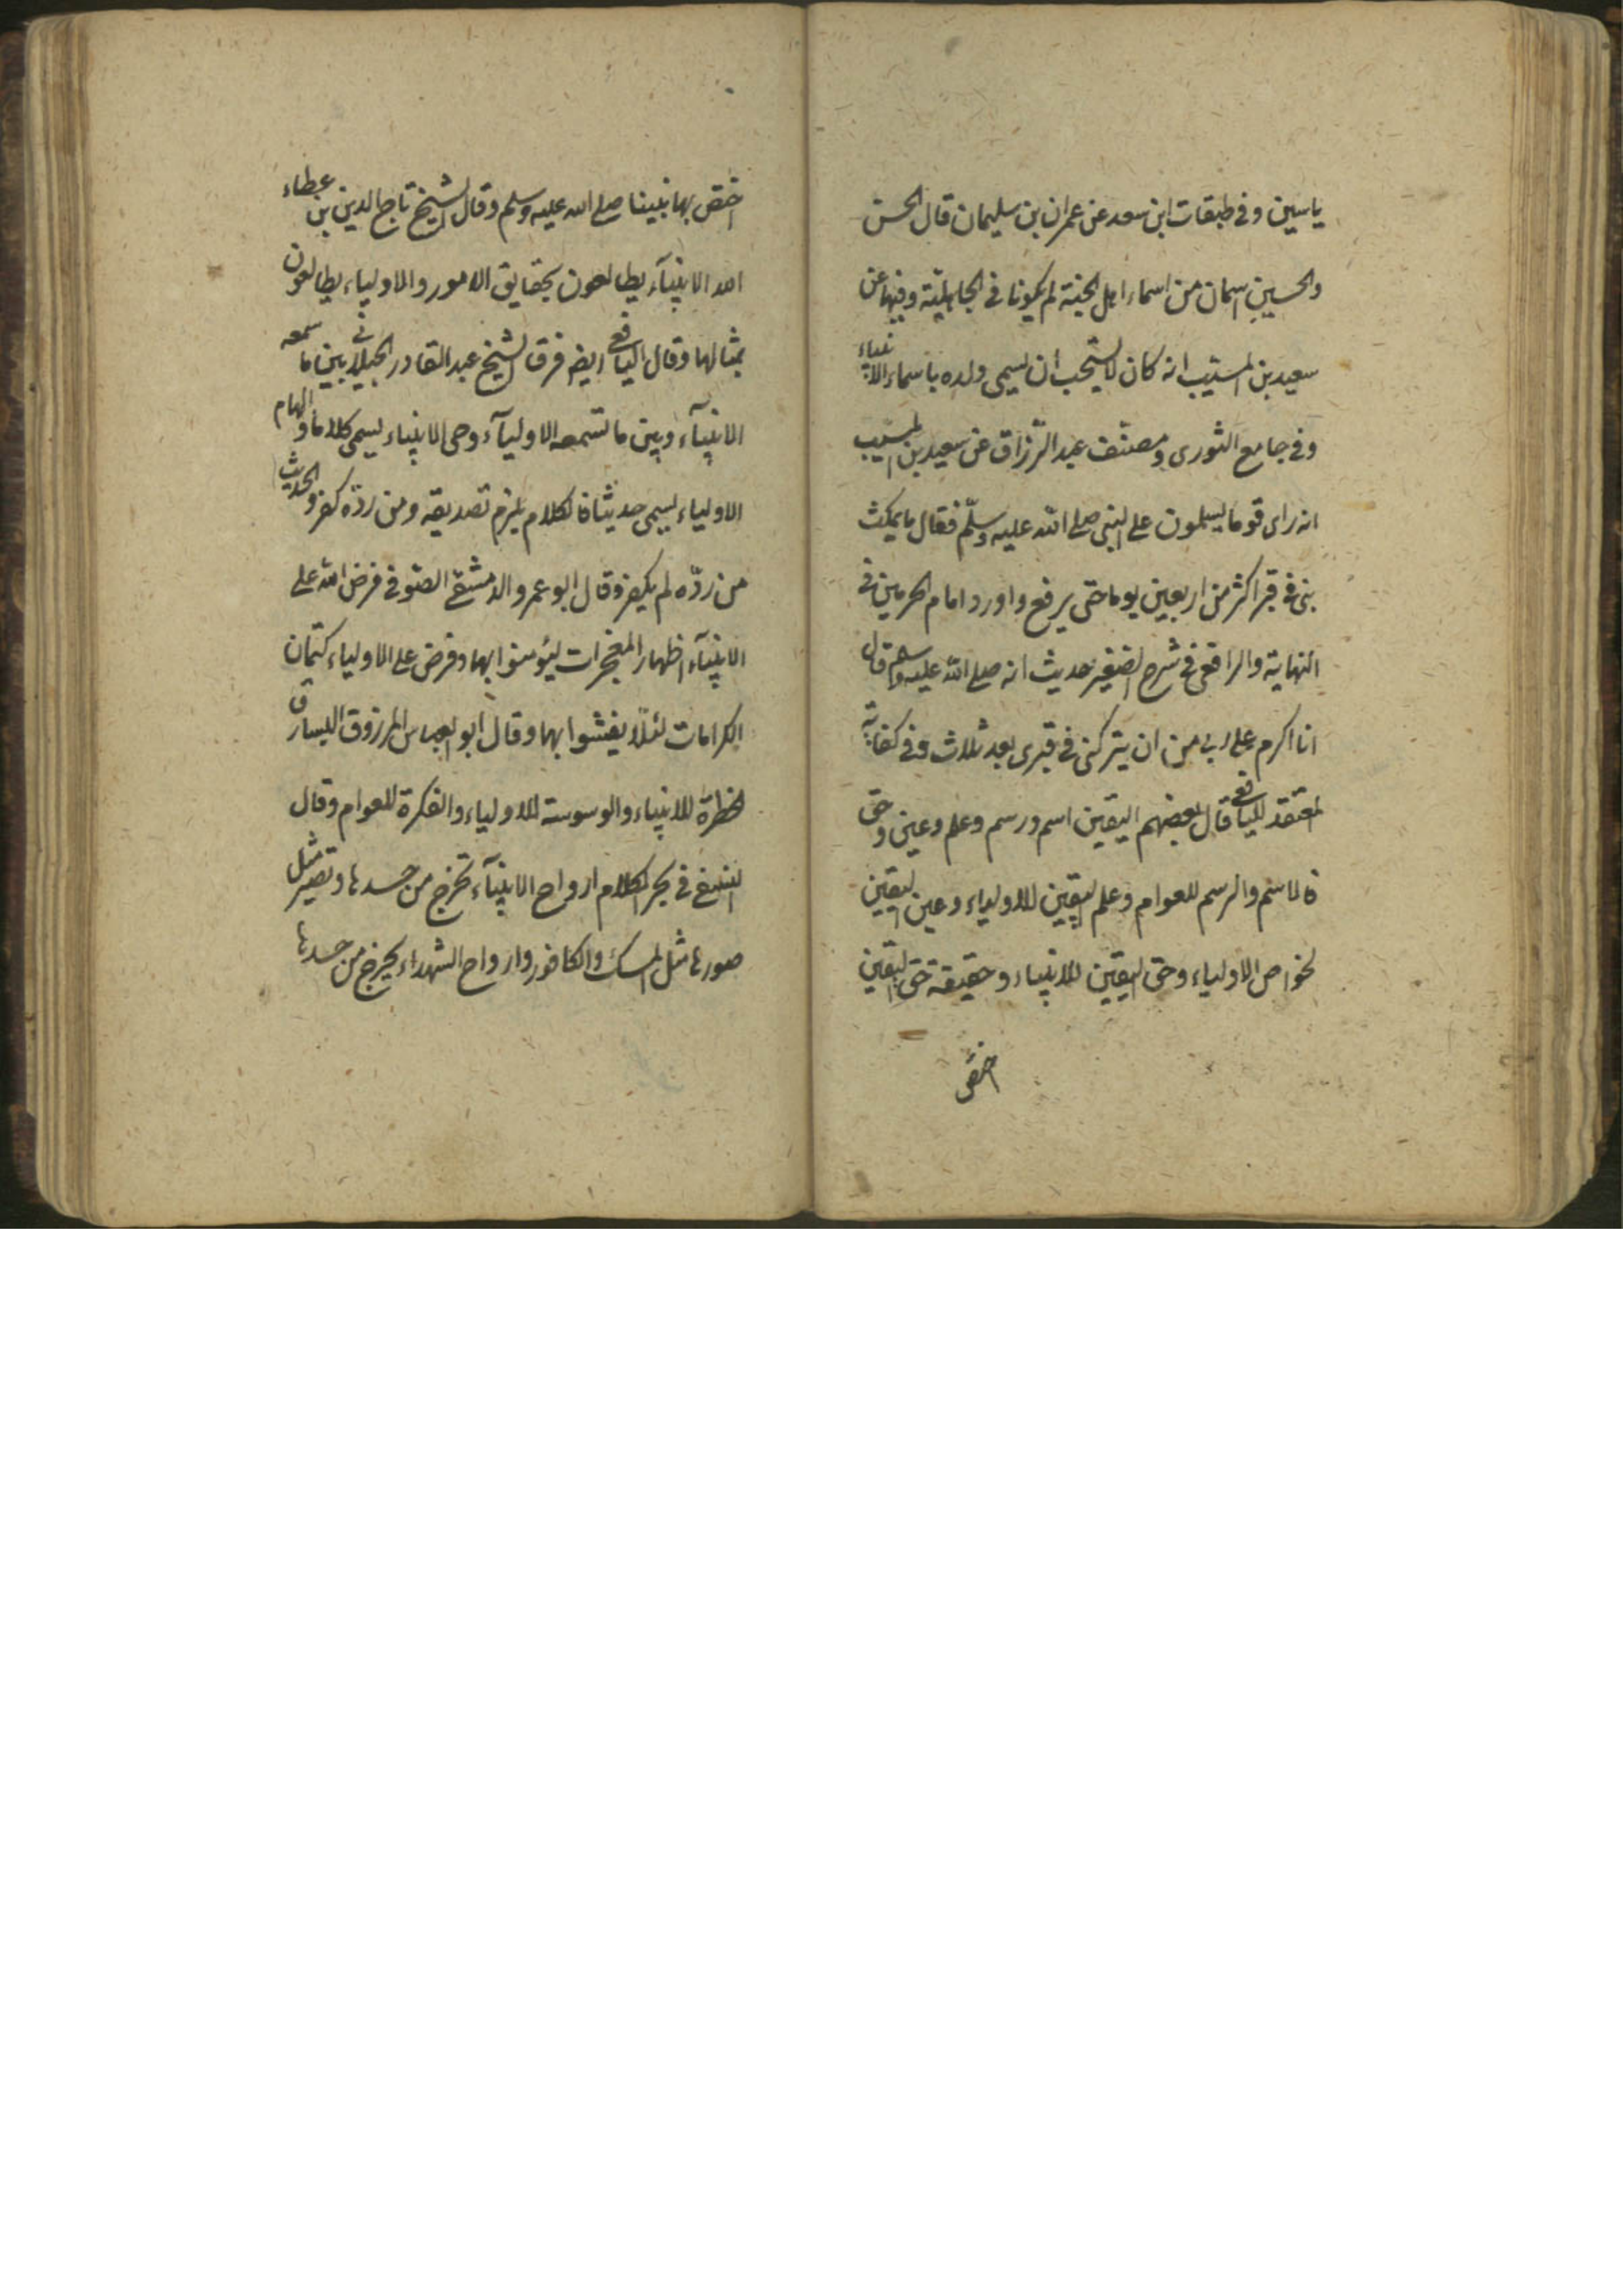 ياسين وفى طبقات ابن سعد عن عمران بن سليمان قال الحسن
والحسين اسمان من اسماء اهل الجنة لم يكونا فى الجاهلية وفيها عن
سعيد بن المسيب انه كان لا يستحب ان يسمى ولده باسماء الانبياء
وفى جامع الثورى ومصنف عبد الرزاق عن سعيد بن المسيب
انه راى قوما يسلمون على النبى صلى الله عليه وسلّم فقال ما يمكث
نبى فى قبر اكثر من اربعين يوما حتى يرفع واورد امام الحرمين فى
النهاية والرافعى فى شرح الصغير حديث انه صلى الله عليه وسلم قال
انا اكرم على ربى من ان يتركنى فى قبرى بعد ثلاث وفى كفاية
المعتقد لليافعى قال بعضهم اليقين اسم ورسم وعلم وعين وحق
فالاسم والرسم للعوام وعلم اليقين للاولياء وعين اليقين
لخواص الاولياء وحق اليقين للانبياء وحقيقة حق اليقين
اختص
اختص بها نبينا صلى الله عليه وسلم وقال الشيخ تاج الدين بن عطاء
الله الانبيآء يطالعون بحقايق الامور والاولياء يطالعون
بمثالها وقال اليافعى ايضا فرق الشيخ عبد القادر الجيلانى بين ما سمعه
الانبيآء وبين ما تسمعه الاوليآء وحى الانبياء يسمى كلاما والهام
الاولياء يسمى حديثا فالكلام يلزم تصديقه ومن ردّه كفر والحديث
من ردّه لم يكفر وقال ابو عمرو الدمشقى الصوفى فرض الله على
الانبيآء اظهار المعجزات ليؤمنوا بها وفرض على الاولياء كتمان
الكرامات لئلا يفتنوا بها وقال ابو العباس المرزوق اليسارى
الخطرة للانبياء والوسوسة للاولياء والفكرة للعوام وقال
النسفى فى بحر الكلام ارواح الانبيآء تخرج من جسدها وتصير مثل
صورها مثل المسك والكافور وارواح الشهداء يخرج من جسدها